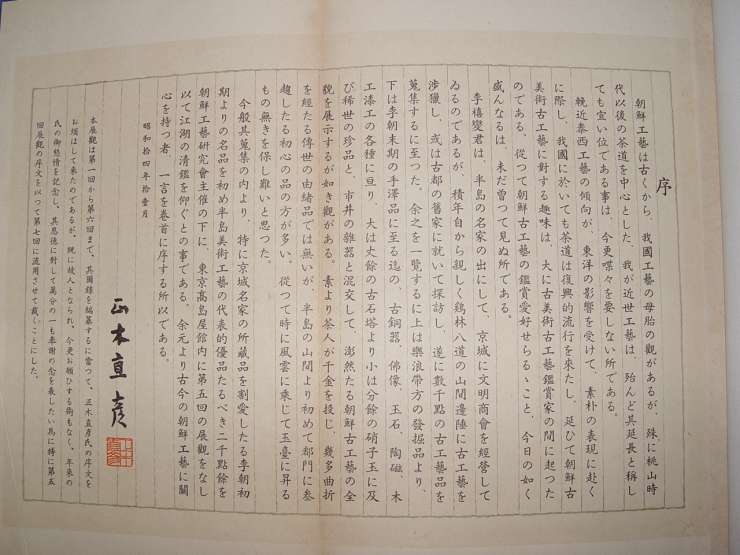 序
朝鮮工藝は古くから、我國工藝の母胎の觀があるが、殊に桃山時
代以後の茶道を中心とした、我が近世工藝は、殆んど其延長と稱し
ても宜い位である事は、今更喋々を要しない所である。
輓近泰西工藝の傾向が、東洋の影響を受けて、素朴の表現に赴く
に際し、我國に於いても茶道は復興的流行を來たし、延ひて朝鮮古
美術古工藝に對する趣味は、大に古美術古工藝鑑賞家の間に起つた
のである。從つて朝鮮古工藝の鑑賞愛好せらるゝこと、今日の如く
盛んなるは、未だ曾つて見ぬ所である。
李禧燮君は、半島の名家の出にして、京城に文明商會を經營して
ゐるのであるが、積年自から親しく鷄林八道の山間邊陲に古工藝を
涉獵し、或は古都の舊家に就いて探訪し、遂に數千點の古工藝品を
蒐集するに至つた。余之を一覽するに上は樂浪帶方の發掘品より、
下は李朝末期の手澤品に至る迄の、古銅器、佛像、玉石、陶磁、木
工漆工の各種に亘り、大は丈餘の古石塔より小は分餘の硝子玉に及
び稀世の珍品と、市井の雜器と混交して、澎然たる朝鮮古工藝の全
貌を展示するが如き觀がある。素より茶人が千金を投じ、幾多曲折
を經たる傳世の由緖品では無いが、半島の山間より初めて都門に參
趨したる初心の品の方が多い。從つて時に風雲に乘じて玉臺に昇る
もの無きを保し難いと思つた。
今般其蒐集の內より、特に京城名家の所藏品を割愛したる李朝初
期よりの名品を初め半島美術工藝の代表的優品たるべき二千點餘を
朝鮮工藝研究會主催の下に、東京高島屋館內に第五回の展觀をなし
以て江湖の淸鑑を仰ぐとの事である。余元より古今の朝鮮工藝に關
心を持つ者、一言を卷首に序する所以である。
昭和拾四年拾壹月
正木直彥
本展觀は第一回から第六回まで、其圖錄を編纂するに當つて、正木直彥氏の序文を
お煩はして來たのであるが、旣に故人となられ、今更お願ひする術もなく、年來の
氏の御懇情を記念し、其恩德に對して萬分の一も奉謝の念を表したい爲に特に第五
回展觀の序文を以つて第七回に流用させて戴くことにした。